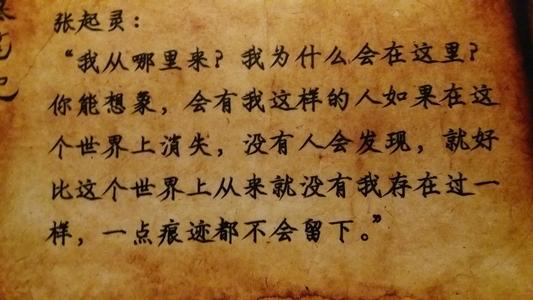 张起灵：
“我从哪里来？我为什么会在这里？
你能想象，会有我这样的人如果在这
个世界上消失，没有人会发现，就好
比这个世界上从来就没有我存在过一
样，一点痕迹都不会留下。”